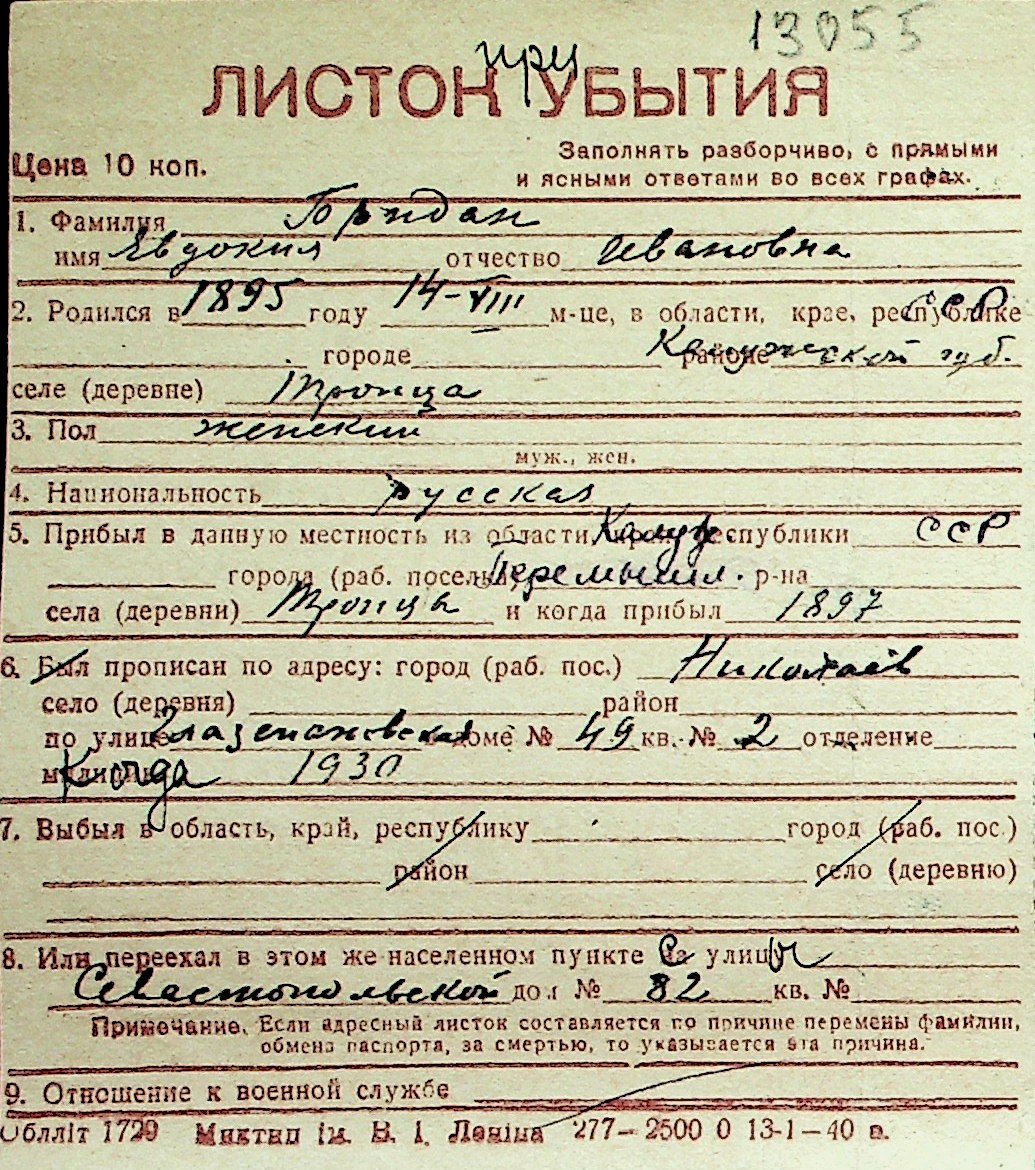 13055
при
ЛИСТОК УБЫТИЯ
Цена 10 коп.
Заполнять разборчиво, с прямыми
и ясными ответами во всех графах.
1. Фамилия
имя Евдокия отчество Ивановна
2. Родился в 1895 году 14-VIII м-це, в области, крае, республике ССР
городе районе Калужской губ.
селе (деревне) Троица
3. Пол женский
муж., жен.
4. Национальность русская
5. Прибыл в данную местность из области, республики ССР
города (раб. поселка) Перемышл. р-на
села (деревни) Троицы и когда прибыл 1897
6. Был прописан по адресу: город (раб. пос.) Николаев
село (деревня) район
по улице Глазенаповская доме № 49 кв. № 2 отделение
милиции Когда 1930
7. Выбыл в область, край, республику город (раб. пос.)
район село (деревню)
8. Или переехал в этом же населенном пункте с улицы
Севастопольской дом № 82 кв. №
Примечание. Если адресный листок составляется по причине перемены фамилии,
обмена паспорта, за смертью, то указывается эта причина.
9. Отношение к военной службе
Облліт 1729 Миктип ім. В. І. Леніна 277–2500 0 13-1–40 в.